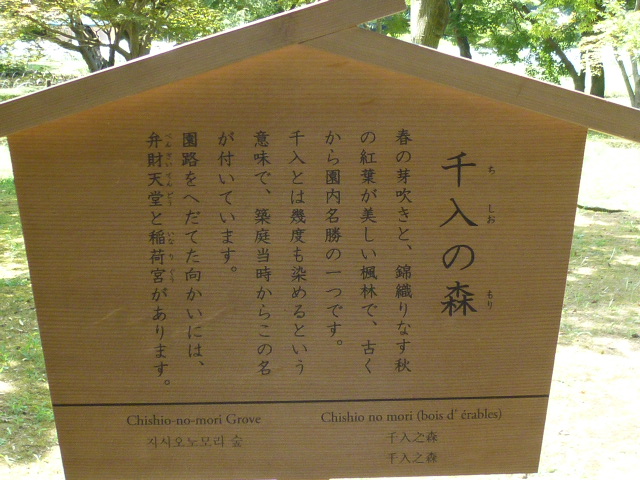 千入の森
ち しお もり
春の芽吹きと、錦織りなす秋
の紅葉が美しい楓林で、古く
から園内名勝の一つです。
千入とは幾度も染めるという
意味で、築庭当時からこの名
が付いています。
園路をへだてた向かいには、
弁財天堂と稲荷宮があります。
べんざいてんどう いなりぐう
Chishio-no-mori Grove
지시오노모리 숲
Chishio no mori (bois d' érables)
千入之森
千入之森